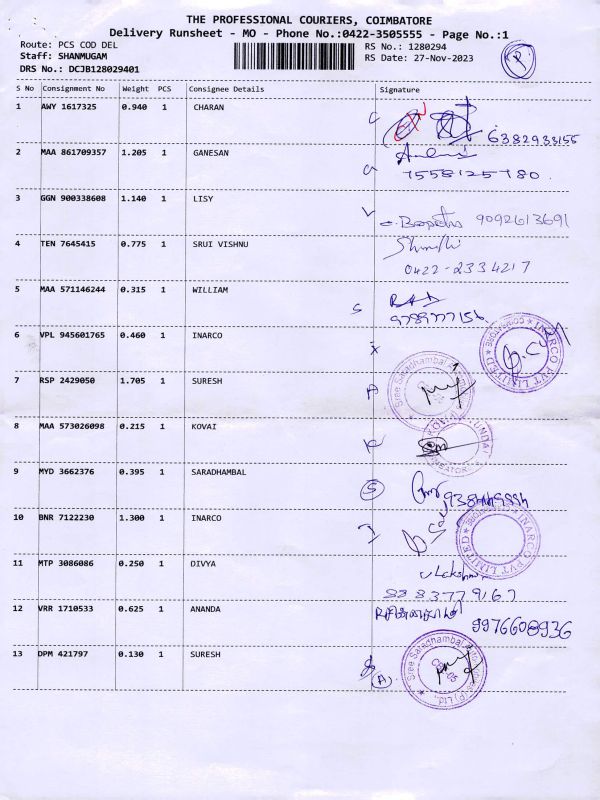 THE PROFESSIONAL COURIERS, COIMBATORE
Delivery Runsheet - MO - Phone No.:0422-3505555 - Page No.:1
Route: PCS COD DEL
RS No.: 1280294
Staff: SHANMUGAM
RS Date: 27-Nov-2023
DRS No.: DCJB128029401
S No Consignment No Weight PCS Consignee Details Signature
1 AWY 1617325 0.940 1 CHARAN
6382933155
2 MAA 861709357 1.205 1 GANESAN
7558125780.
3 GGN 900338608 1.140 1 LISY
9092613691
4 TEN 7645415 0.775 1 SRUI VISHNU
0422-2334217
5 MAA 571146244 0.315 1 WILLIAM
6 VPL 945601765 0.460 1 INARCO
INARCO PVT LIMITED COIMBATORE
7 RSP 2429050 1.705 1 SURESH
Sree Saradhambal
8 MAA 573026098 0.215 1 KOVAI
KOVAI
9 MYD 3662376 0.395 1 SARADHAMBAL
10 BNR 7122230 1.300 1 INARCO
INARCO PVT LIMITED
11 MTP 3086086 0.250 1 DIVYA
8883779167
12 VRR 1710533 0.625 1 ANANDA
9976608936
13 DPM 421797 0.130 1 SURESH
Sree Saradhambal
(A).